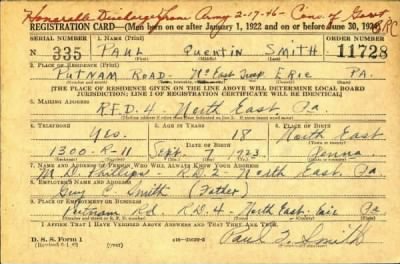 Honorable Discharge from Army 2-17-46 - Conv. of Govt
REGISTRATION CARD—(Men born on or after January 1, 1922 and on or before June 30, 1924)
SERIAL NUMBER 1. NAME (Print) ORDER NUMBER
N 335 PAUL QUENTIN SMITH 11728
2. PLACE OF RESIDENCE (Print)
PUTNAM ROAD - No East Twsp ERIE PA.
[THE PLACE OF RESIDENCE GIVEN ON THE LINE ABOVE WILL DETERMINE LOCAL BOARD
JURISDICTION; LINE 2 OF REGISTRATION CERTIFICATE WILL BE IDENTICAL]
3. MAILING ADDRESS
R.F.D. 4 - North East Pa.
4. TELEPHONE 5. AGE IN YEARS 6. PLACE OF BIRTH
Yes. 18 North East
DATE OF BIRTH
1300-R-11 Sept. 7 1923 Penna
7. NAME AND ADDRESS OF PERSON WHO WILL ALWAYS KNOW YOUR ADDRESS
M. D. Phillips R.D. 2 North East. Pa.
8. EMPLOYER'S NAME AND ADDRESS
Guy C. Smith (Father)
9. PLACE OF EMPLOYMENT OR BUSINESS
Putnam Rd. R.D. 4 - North East - Erie Pa
I AFFIRM THAT I HAVE VERIFIED ABOVE ANSWERS AND THAT THEY ARE TRUE.
D. S. S. Form 1
(over)
Paul Q. Smith